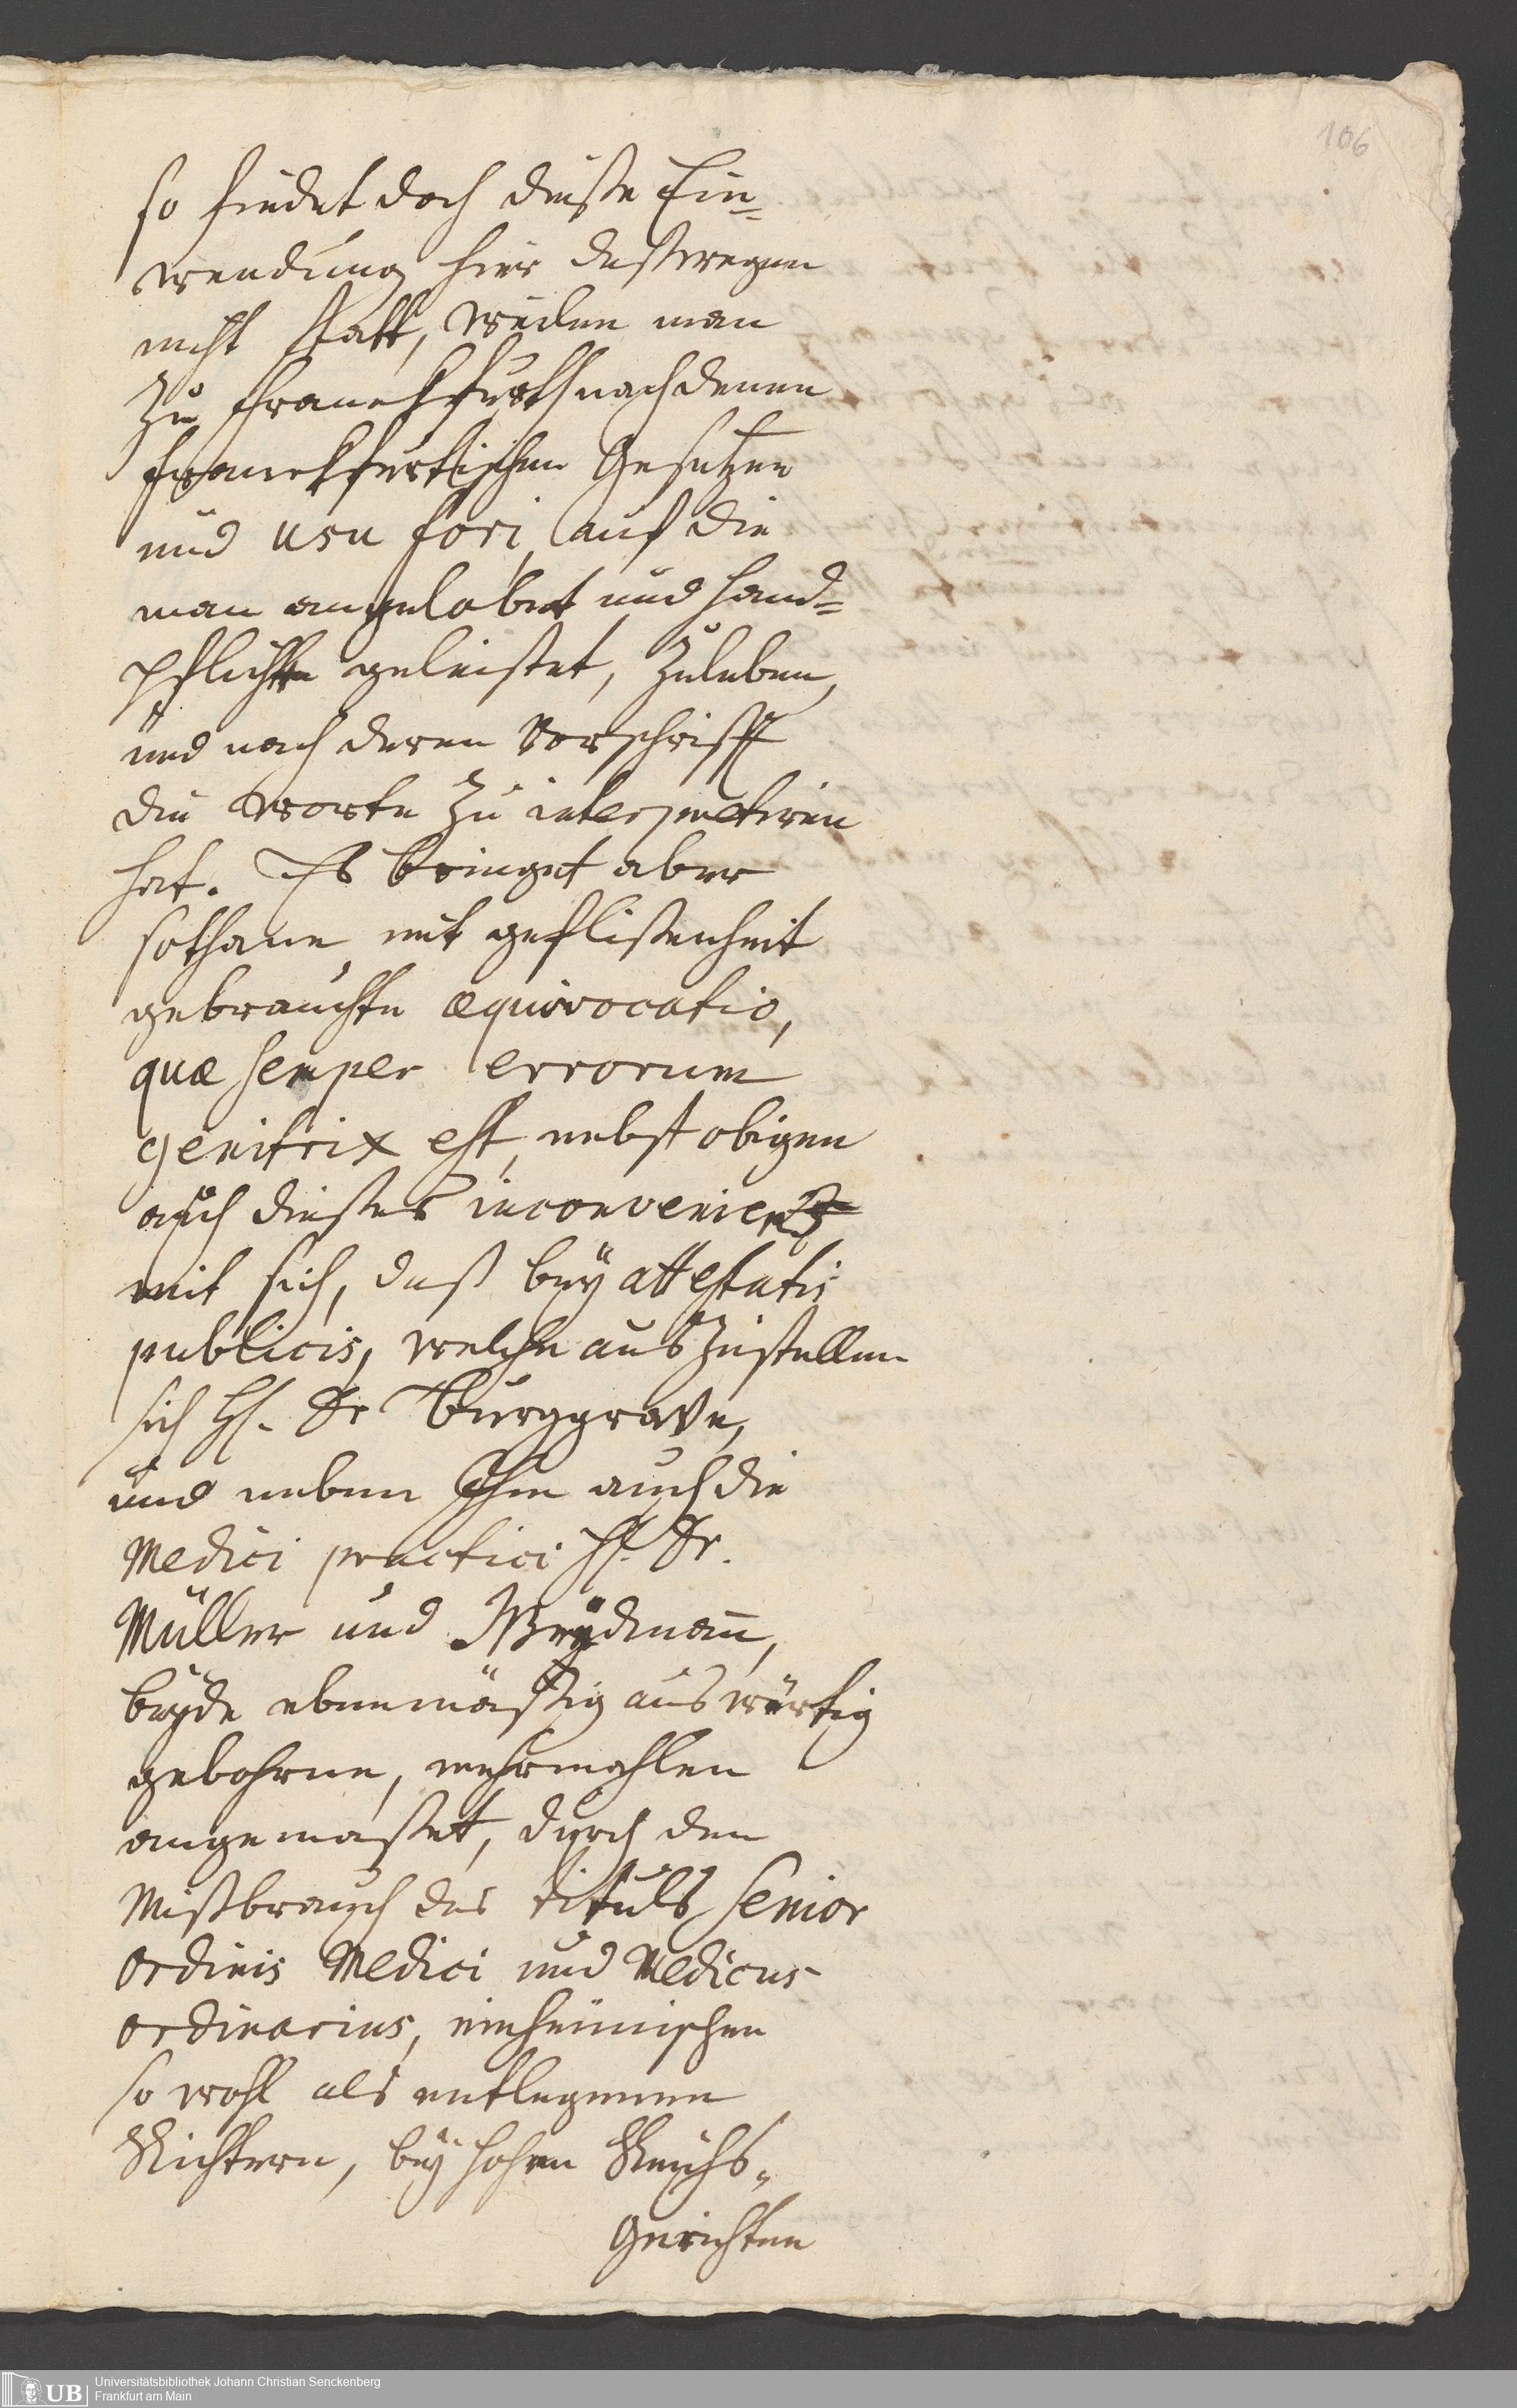 106
so findet doch dieße Ein=
wendung hier deßwegen
nicht statt, weilen man
zu Franckfurth nach denen
Franckfurtischen Gesetzen
und usu fori, auf die
man angelobet und hand=
pflichte geleistet, zuleben,
und nach deren Vorschrifft
die Worte zu interpretiren
hat. Es bringet aber
sothane mit geflißenheit
gebrauchte æquivocatio,
quæ semper errorum
genitrix est, nebst obigen
auch dießes inconvenienz
mit sich, daß bey attestatis
publicis, welche auszustellen
sich H. Dr Burggrave,
und neben Ihm auch die
Medici practici H. Dr.
Müller und Weydmann,
beyde ebenmäßig auswärtig
gebohrne, mehrmahlen
angemaßet, durch den
Mißbrauch des tituls Senior
ordinis Medici und Medicus
ordinarius, einheimischen
so wohl als entlegenen
Richtern, bey hohen Reichs=
Gerichten
UB
Universitätsbibliothek Johann Christian Senckenberg
Frankfurt am Main